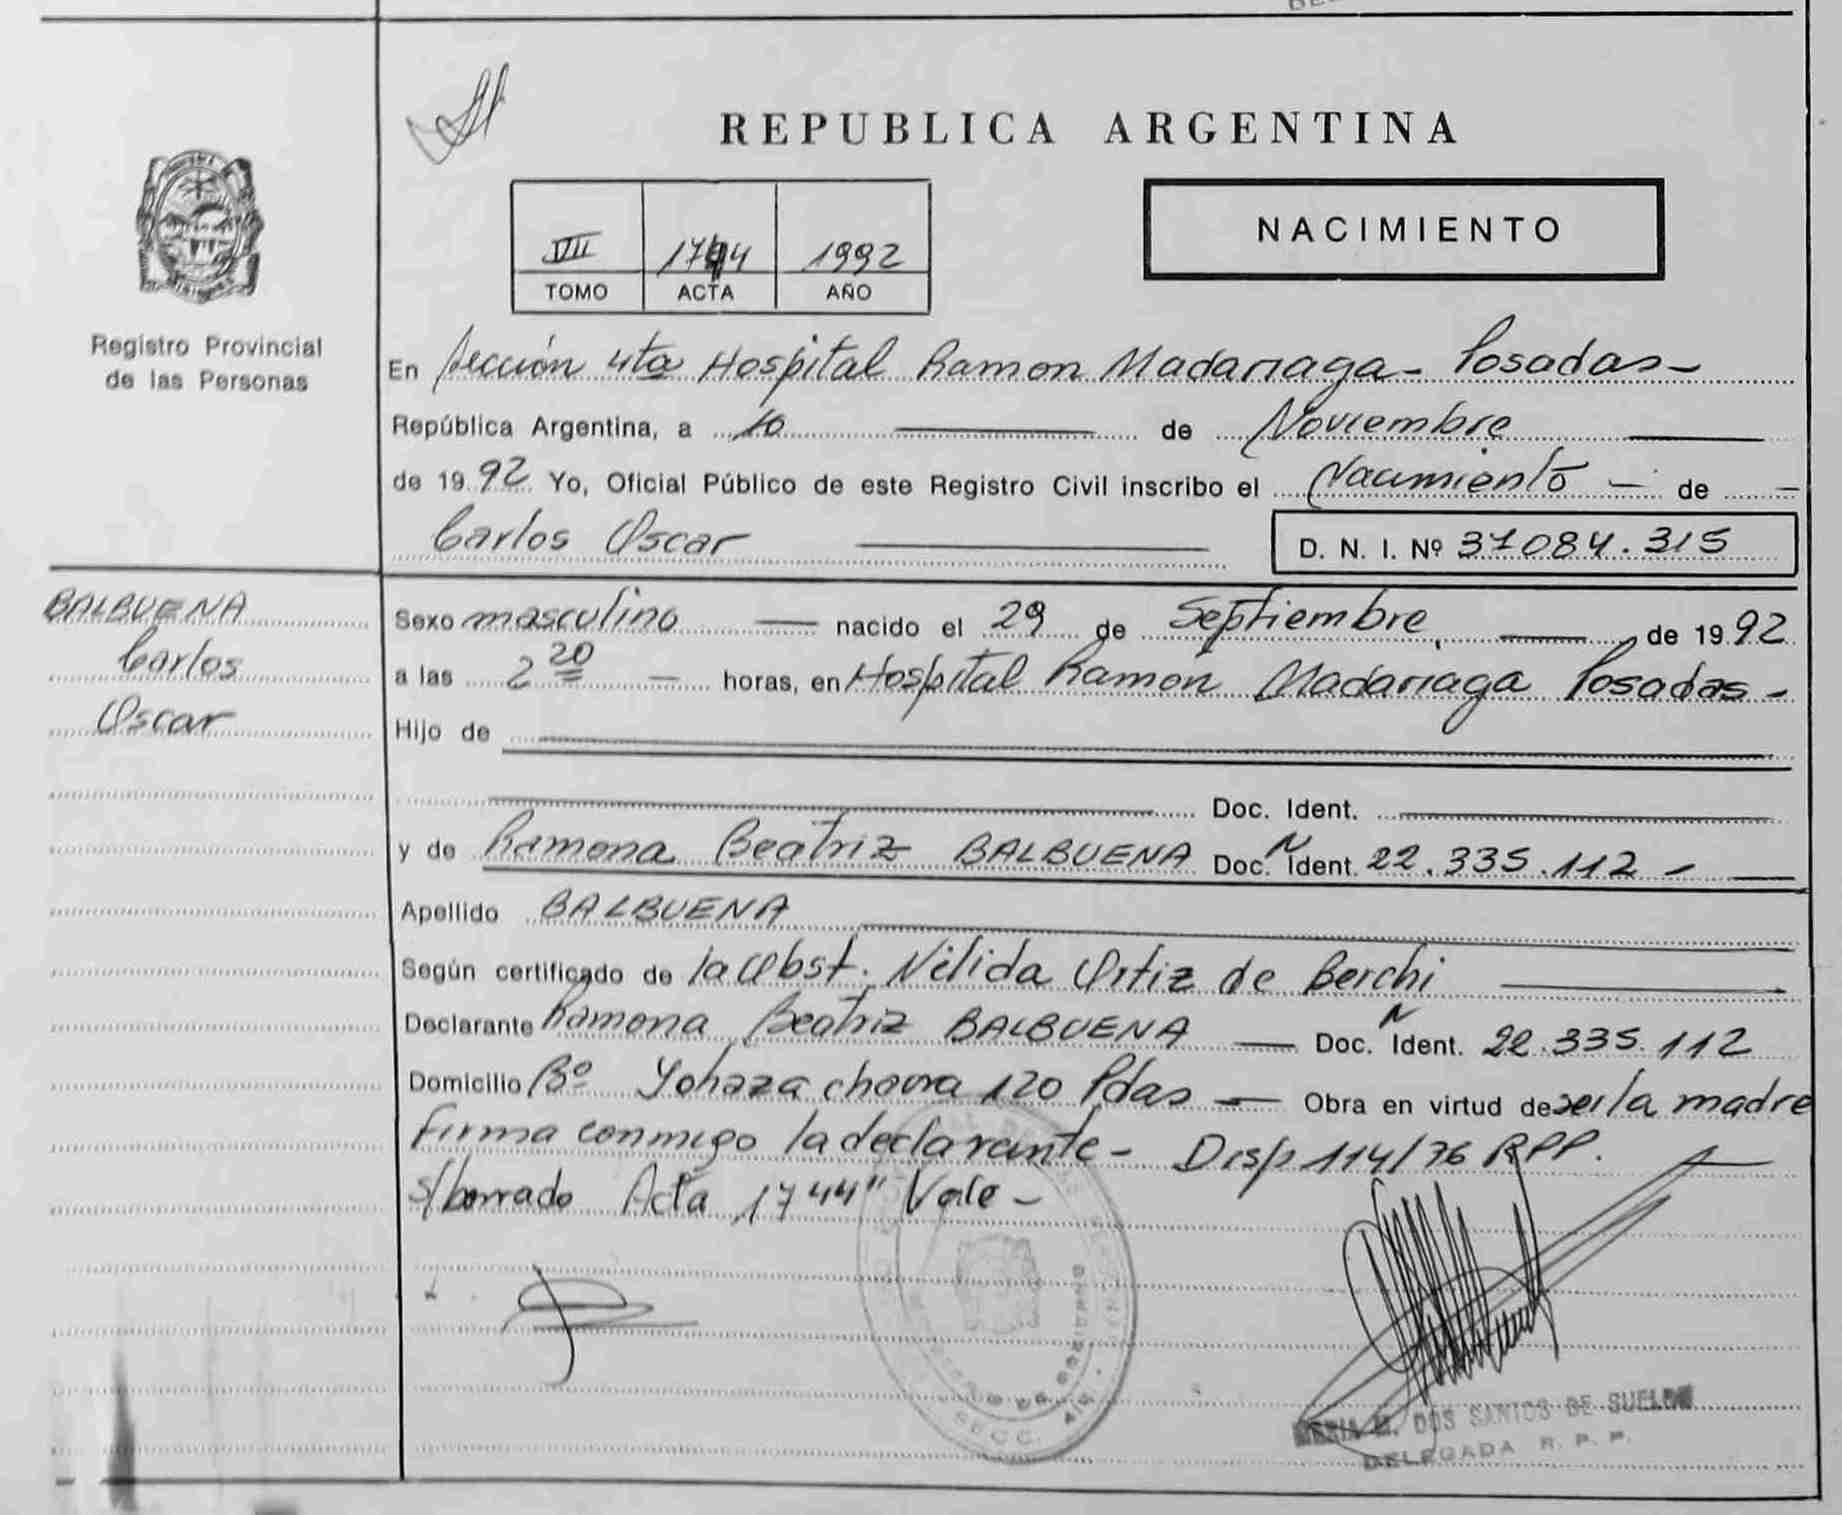 REPUBLICA ARGENTINA
Registro Provincial
de las Personas
VII 1744 1992
TOMO ACTA AÑO
NACIMIENTO
En Sección 4ta Hospital Ramon Madariaga - Posadas -
República Argentina, a 10 de Noviembre
de 1992 Yo, Oficial Público de este Registro Civil inscribo el Nacimiento - de -
Carlos Oscar D. N. I. Nº 37084.315
BALBUENA
Carlos
Oscar
Sexo masculino nacido el 29 de Septiembre, de 1992
a las 2 20 horas, en Hospital Ramón Madariaga Posadas -
Hijo de
Doc. Ident.
y de Ramona Beatriz BALBUENA Doc. N Ident. 22.335.112 -
Apellido BALBUENA
Según certificado de la Obst. Nélida Ortiz de Berchi
Declarante Ramona Beatriz BALBUENA Doc. N Ident. 22.335.112
Domicilio Bº chacra 120 Pdas - Obra en virtud de ser la madre
Firma conmigo la declarante - Disp 114/76 RPP.
s/borrado Acta 1744" Vale -
DOS SANTOS DE
DELEGADA R. P. P.